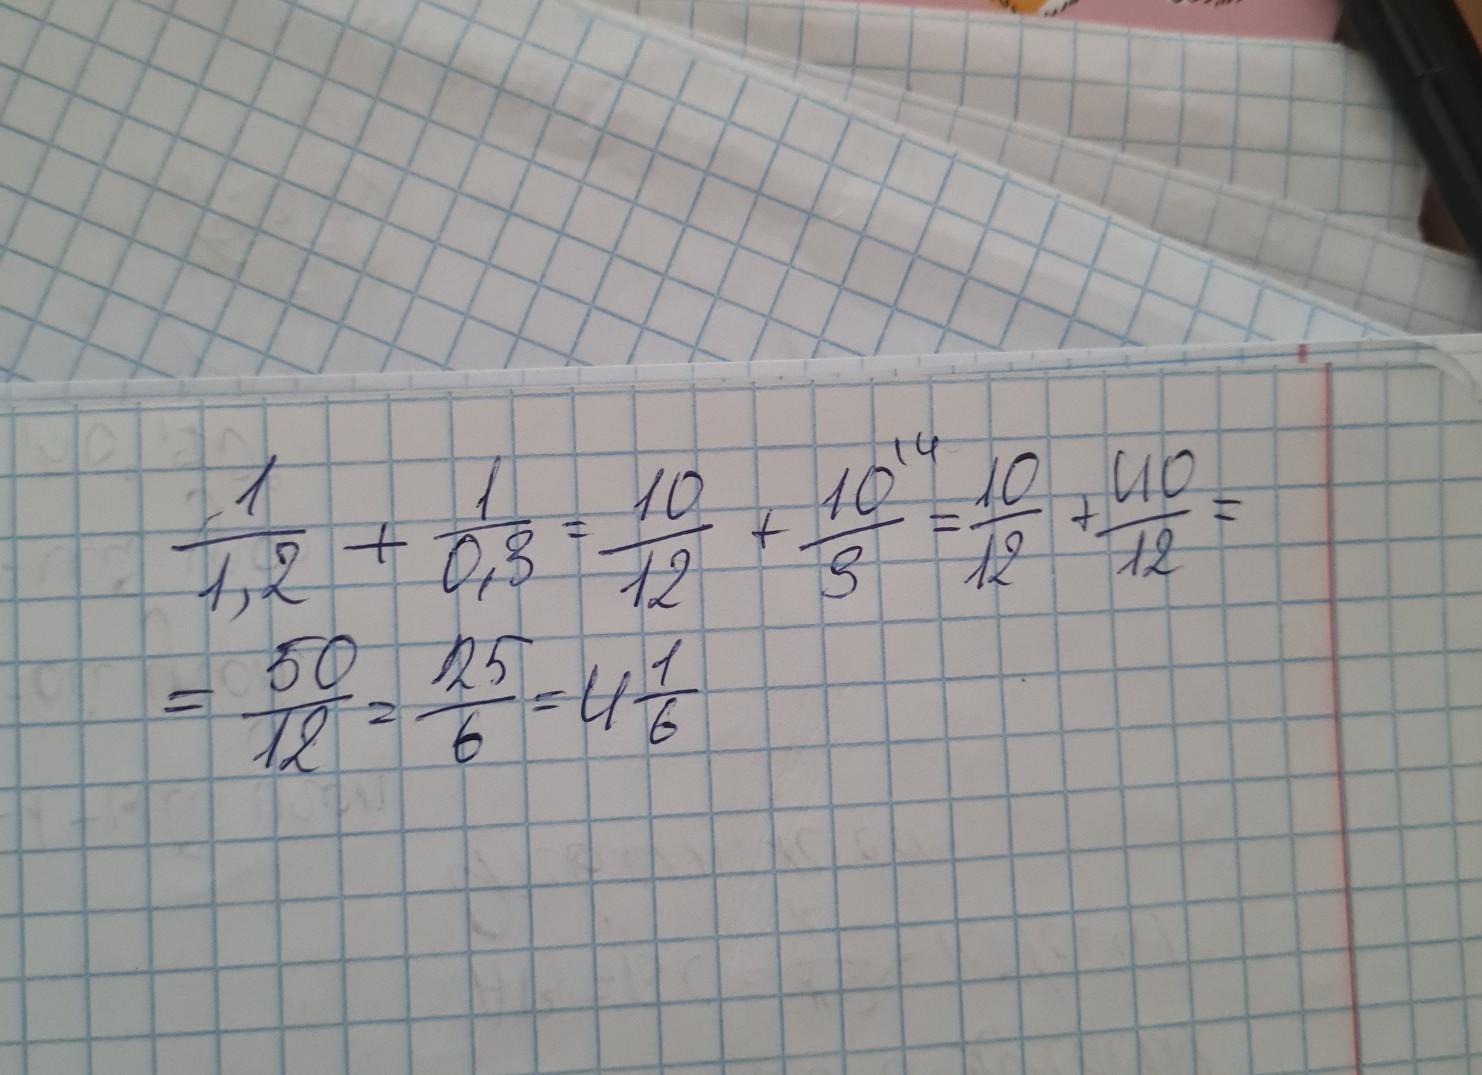 1/1,2 + 1/0,3 = 10/12 + 10/3 ^(14 = 10/12 + 40/12 =
= 50/12 = 25/6 = 4 1/6